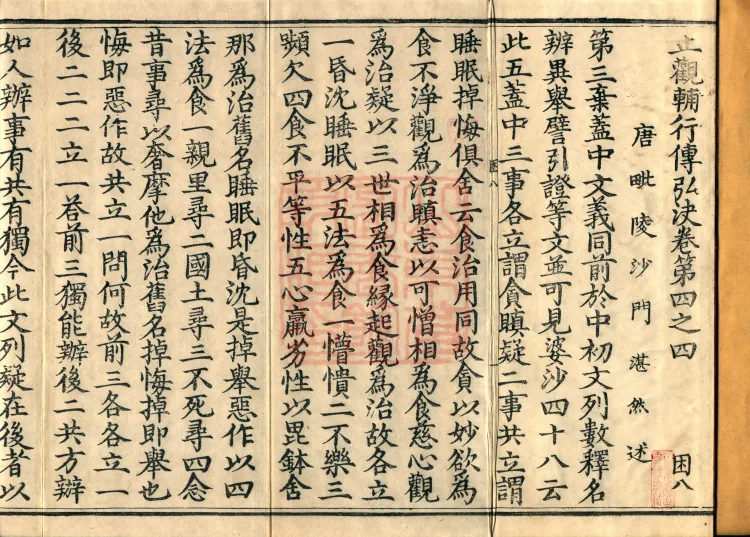 止觀輔行傳弘決卷第四之四 困八
唐毗陵沙門湛然述
第三棄蓋中文義同前於中初文列數釋名
辨異舉譬引證等文並可見婆沙四十八云
此五蓋中三事各立謂貪瞋疑二事共立謂
睡眠掉悔俱舍云食治用同故貪以妙欲為
食不淨觀為治瞋恚以可憎相為食慈心觀
為治疑以三世相為食緣起觀為治故各立
一昏沈睡眠以五法為食一懵憒二不樂三
頻欠四食不平等性五心羸劣性以毘鉢舍
那為治舊名睡眠即昏沈是掉舉惡作以四
法為食一親里尋二國土尋三不死尋四念
昔事尋以奢摩他為治舊名掉悔掉即舉也
悔即惡作故共立一問何故前三各各立一
後二二二立一答前三獨能辦後二共方辦
如人辦事有共有獨今此文列疑在後者以